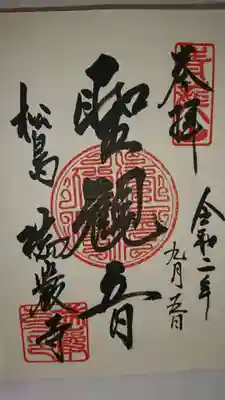 奉拝
令和二年
九月五日
聖観音
松島 瑞巌寺